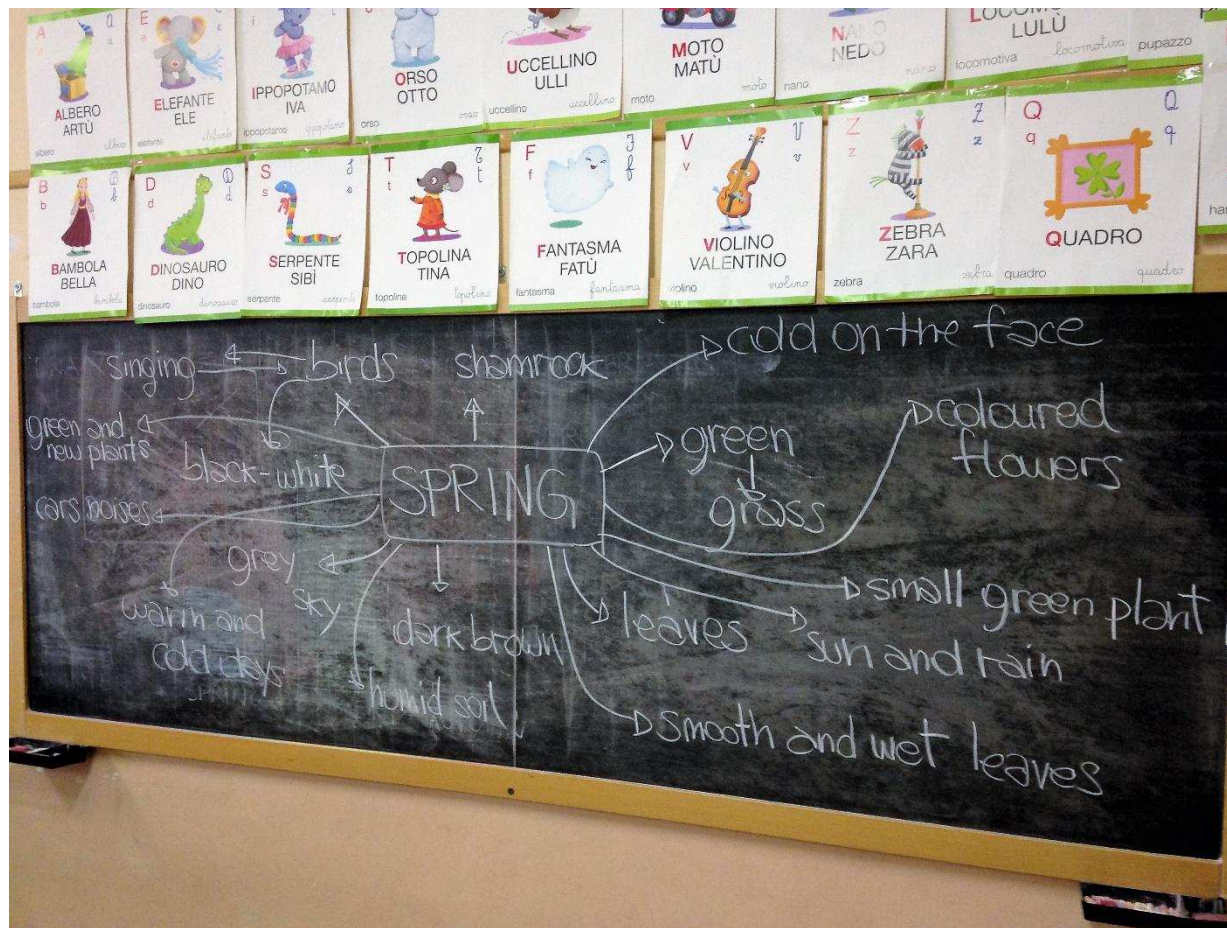 A a
ALBERO
ARTÙ
albero albero
E e
ELEFANTE
ELE
elefante elefante
i
IPPOPOTAMO
IVA
ippopotamo ippopotamo
o
ORSO
OTTO
orso orso
UCCELLINO
ULLI
uccellino uccellino
MOTO
MATÙ
moto moto
NANO
NEDO
nano nano
LULÙ
locomotiva locomotiva
pupazzo
B B
b b
BAMBOLA
BELLA
bambola bambola
D D
d d
DINOSAURO
DINO
dinosauro dinosauro
S S
s s
SERPENTE
SIBÌ
serpente serpente
T T
t t
TOPOLINA
TINA
topolina topolina
F F
f f
FANTASMA
FATÙ
fantasma fantasma
V V
v v
VIOLINO
VALENTINO
violino violino
Z Z
z z
ZEBRA
ZARA
zebra zebra
Q Q
q q
QUADRO
quadro quadro
singing
birds
shamrock
cold on the face
green and
new plants
black-white
SPRING
green
grass
coloured
flowers
cars noises
grey
sky
warm and
cold days
dark brown
humid soil
leaves
small green plant
sun and rain
smooth and wet leaves